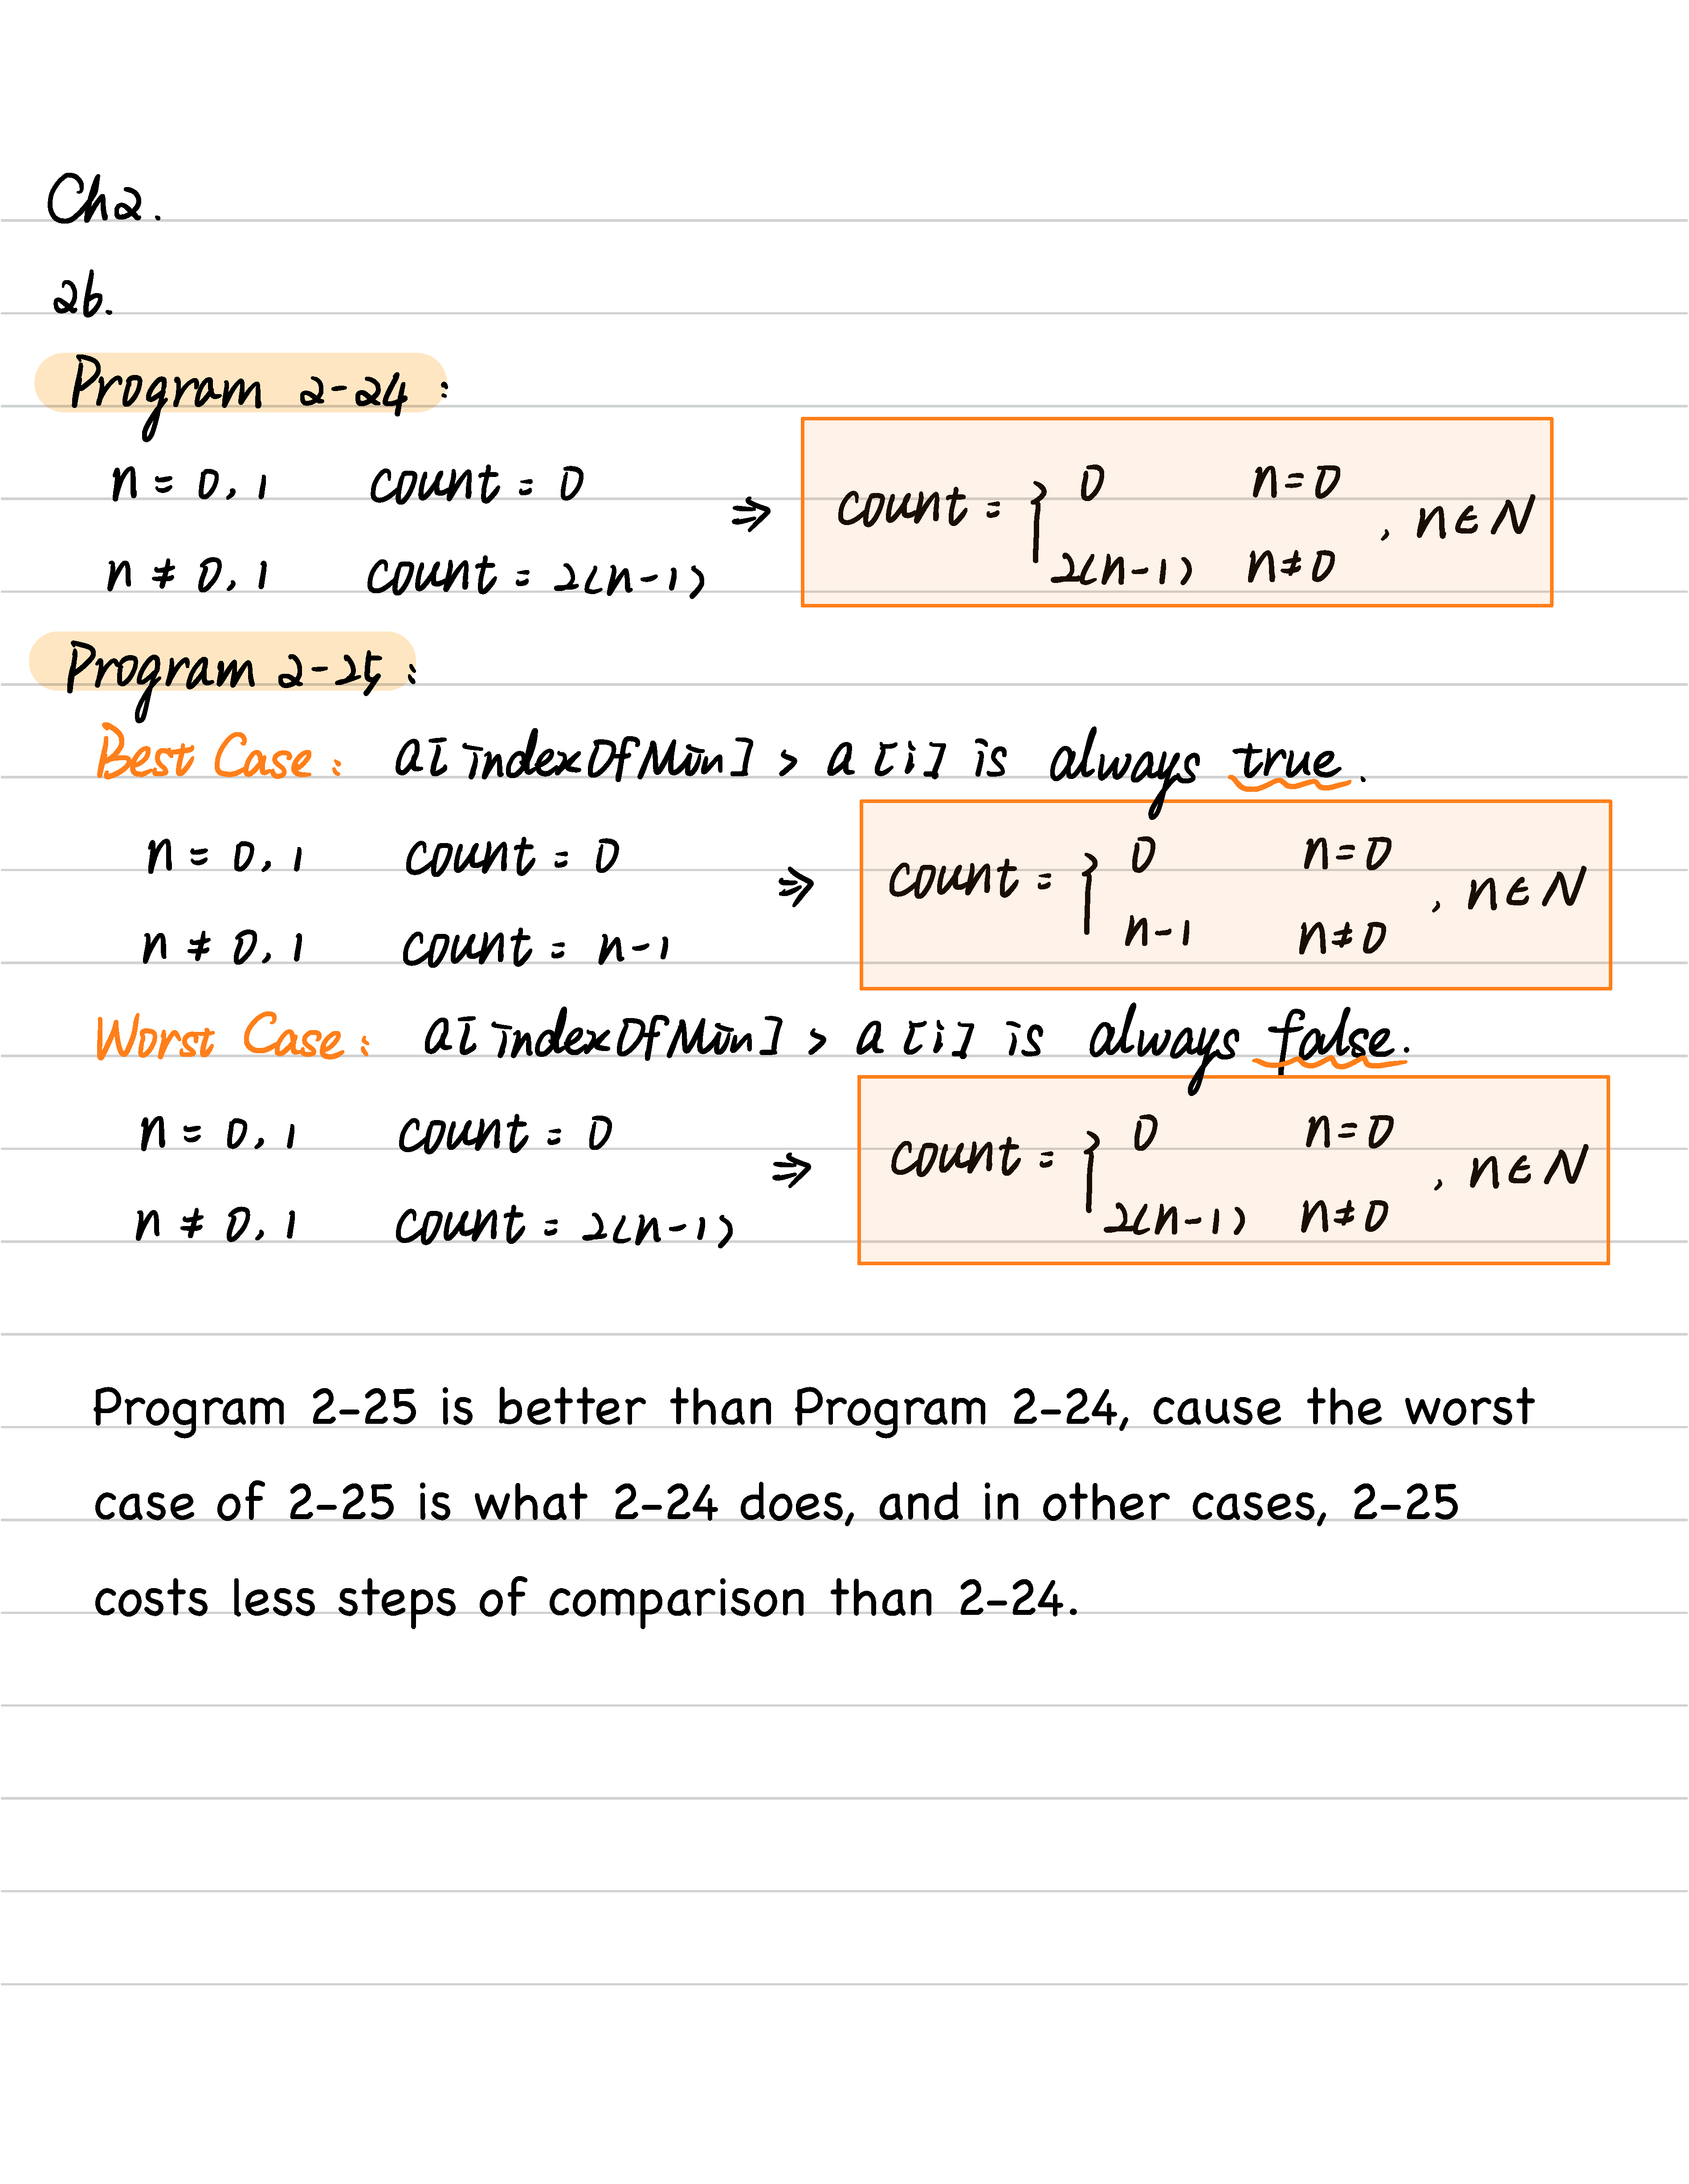 Ch2.
26.
Program 2-24:
n = 0, 1 count = 0
n ≠ 0, 1 count = 2(n-1)
⇒ count = { 0 n=0
2(n-1) n≠0 , n∈N
Program 2-25:
Best Case: a[indexOfMin] > a[i] is always true.
n = 0, 1 count = 0
n ≠ 0, 1 count = n-1
⇒ count = { 0 n=0
n-1 n≠0 , n∈N
Worst Case: a[indexOfMin] > a[i] is always false.
n = 0, 1 count = 0
n ≠ 0, 1 count = 2(n-1)
⇒ count = { 0 n=0
2(n-1) n≠0 , n∈N
Program 2-25 is better than Program 2-24, cause the worst
case of 2-25 is what 2-24 does, and in other cases, 2-25
costs less steps of comparison than 2-24.